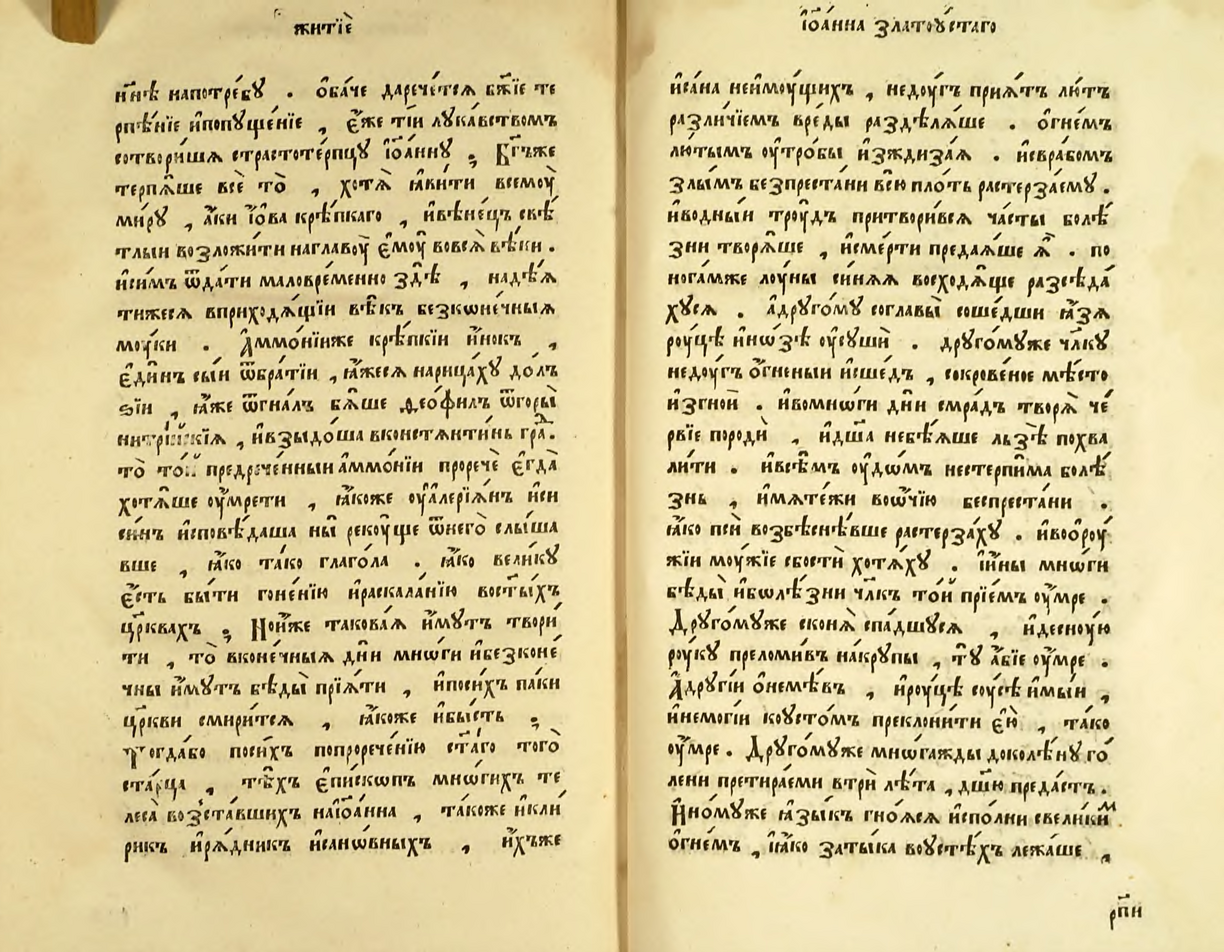 житїѐ
нн҃ѣ напотре́бꙋ . ѻ҆ба́че дарече́тсѧ бж҃їе те
рпѣ́нїе и҆попꙋще́нїе , є҆́же тїи лꙋка́вствомъ
сотвори́шѧ страстоте́рпцꙋ і҆ѡа́ннꙋ ; Бг҃ъже
терпѧ́ше всѐ то̀ , хотѧ̀ ꙗ҆ви́ти всемоу̀
ми́рꙋ , а҆́ки і҆́ѡва крѣ́пкаго , и҆вѣне́цъ свѣ́
тлыи возложи́ти наглавоу̀ є҆моу̀ вовсѧ̀ вѣ́ки .
и҆си́мъ ѿда́ти маловре́менно здѣ̀ , надѣ́ѧ
тижесѧ вприходѧ́щїи вѣ́къ безкѡне́чныѧ
моу́ки . А҆ммо́нїиже крѣ́пкїи и҆́нокъ ,
є҆ди́нъ сыи ѿбра́тїи , ꙗ҆́жесѧ нарица́хꙋ до́лъ
ѕїи , ꙗ҆́же ѿгна́лъ бѧ́ше ѳео́филъ ѿгоры̀
нитрі́йскїѧ , и҆взыдо́ша вконстѧнти́нь гра̀д .
то̀ то́й предрече́нныи а҆ммо́нїи проречѐ є҆гда̀
хотѧ́ше оу҆мре́ти , ꙗ҆́коже оу҆але́рїѧнъ и҆си
си́нъ и҆сповѣ́даша ны̀ рекоу́ще ѿнего̀ слы́ша
вше , ꙗ҆́ко та́ко глаго́ла . ꙗ҆́ко вели́кꙋ
є҆́сть бы́ти гоне́нїю и҆раскала́нїю вост҃ы́хъ
цр҃квахъ ; Нои҆́же такова́ѧ и҆́мꙋтъ твори́
ти , то̀ вконе́чныѧ дн҃и мнѡ́ги и҆безконе́
чны и҆́мꙋтъ бѣ́ды прїѧ́ти , и҆поси́хъ па́ки
цр҃кви смири́тсѧ , ꙗ҆́коже и҆бы́сть ;
Тогда́бо поси́хъ попрорече́нїю ст҃а́го того̀
ста́рца , тѣ́хъ є҆пи́скѡпъ мнѡ́гихъ те
леса̀ возста́вшихъ наі҆ѡа́нна , та́коже и҆кли́
рикъ и҆рѧ́дникъ и҆санѡ́вныхъ , и҆́хъже
і҆ѡа́нна златоꙋ́стаго
и҆са́на неи҆моу́щихъ , недоу́гъ прїѧ́тъ лю́тъ
разли́чїемъ вре́ды раздѣлѧ́ше . ѻ҆гне́мъ
лю́тымъ оу҆тро́бы и҆зждиза́ѧ . и҆свра́бомъ
злы́мъ безпреста́ни всю пло́ть растерза́емꙋ .
и҆во́дныи троу́дъ притвори́всѧ ча́сты болѣ́
зни творѧ́ше , и҆сме́рти предаѧ́ше ѧ҆̀ . по
нога́мже лоу́ны си́нѧѧ восходѧ́ще разсѣда́
хꙋсѧ . а҆дрꙋго́мꙋ соглавы̀ соше́дши ꙗ҆́зѧ
роуцѣ̀ и҆нѡ́зѣ оу҆сꙋшѝ . дрꙋго́мꙋже чл҃кꙋ
недоу́гъ ѻ҆́гненыи и҆ше́дъ , сокрове́ное мѣ́сто
и҆згно́и . и҆вомнѡ́ги дн҃и смра́дъ творѧ̀ че́
рвїе породѝ , и҆дш҃а небѣѧ́ше льзѣ̀ похва
ли́ти . и҆всѣ́мъ оу҆дѡ́мъ нестерпи́ма болѣ́
знь , и҆мѧте́жи воѻ҆́чїю беспреста́ни .
ꙗ҆́ко псѝ возбѣснѣ́вше растерза́хꙋ . и҆воѻ҆роу́
жїи моу́жїе сбостѝ хотѧ́хꙋ . і҆и҆́ны мнѡ́ги
бѣ́ды и҆бѡлѣ́зни чл҃къ то́й прїе́мъ оу҆́мре .
Дрꙋго́мꙋже сконѧ̀ спа́дшꙋсѧ , и҆десноу́ю
роу́кꙋ преломи́въ на́крꙋпы , тꙋ̀ а҆́бїе оу҆́мре .
А҆дрꙋ́гїи ѻ҆неме́въ , и҆роу́цѣ соу́сѣ и҆мы́и ,
и҆немоги́и коу́стомъ преклони́ти є҆ю̀ , та́ко
оу҆́мре . Дрꙋго́мꙋже мнѡга́жды доколѣ́нꙋ го́
лени претира́еми втрѝ лѣ́та , дш҃ю преда́стъ .
И҆но́мꙋже ꙗ҆зы́къ гноѧ́сѧ и҆спо́лни свели́ки́м
ѻ҆гне́мъ , ꙗ҆́ко заты́ка воустѣ́хъ лежа́ше ,
рп҃и